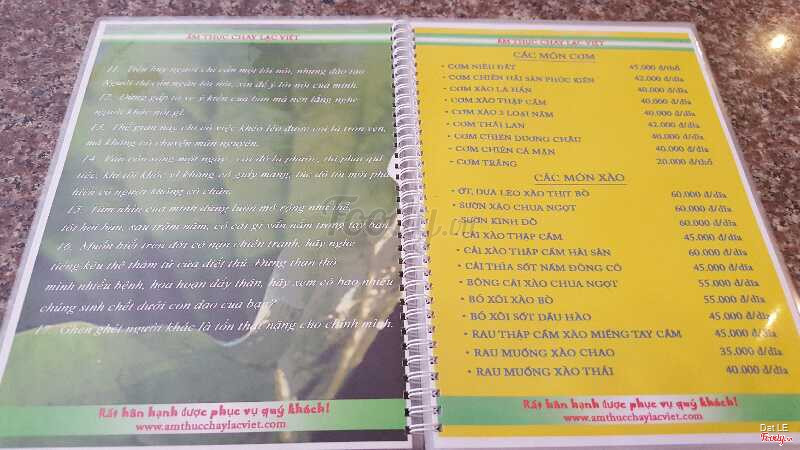 ẨM THỰC CHAY LẠC VIỆT
11. Trên đời người chỉ cần một lời nói, nhưng đào tạo
Người thì cần ngàn lời nói, xin để ý lời nói của mình.
12. Đừng gấp tỏ vẻ ý kiến của bạn mà nên lắng nghe
người khác nói gì.
13. Thế gian này chỉ có việc khéo léo đươc coi là trọn vẹn,
mà không có chuyện mãn nguyện.
14. Vẫn còn sống một ngày, vẫn đó là phước, thì phải quí
tiếc, khi tôi khóc vì không có giầy mang, lúc đó tôi mới phát
hiện có người không có chân.
15. Tầm nhìn của mình đừng luôn mở rộng như thế,
tốt hơn bạn, sau trăm năm, có cái gì vẫn nằm trong tay bạn.
16. Muốn biết trên đời có nạn chiến tranh, hãy nghe
tiếng kêu thê thảm từ cửa điết thú. Đừng than thở
mình nhiều bệnh, hoạ hoạn đầy thân, hãy xem có bao nhiêu
chúng sinh chết dưới con dao cuả bạn?
17. Ghen ghét người khác là tổn thất nặng cho chính mình.
Rất hân hạnh được phục vụ quý khách!
www.amthucchaylacviet.com
ẨM THỰC CHAY LẠC VIỆT
CÁC MÓN CƠM
• CƠM NIÊU ĐẤT 45.000 đ/thố
• CƠM CHIÊN HẢI SẢN PHÚC KIẾN 42.000 đ/dĩa
• CƠM XÀO LA HÁN 40.000 đ/dĩa
• CƠM XÀO THẬP CẨM 40.000 đ/dĩa
• CƠM XÀO 3 LOẠI NẤM 40.000 đ/dĩa
• CƠM THÁI LAN 42.000 đ/dĩa
• CƠM CHIÊN DƯƠNG CHÂU 40.000 đ/dĩa
• CƠM CHIÊN CÁ MẶN 40.000 đ/dĩa
• CƠM TRẮNG 20.000 đ/thố
CÁC MÓN XÀO
• ỚT, DƯA LEO XÀO THỊT BÒ 60.000 đ/dĩa
• SƯỜN XÀO CHUA NGỌT 60.000 đ/dĩa
• SƯỜN KINH ĐÔ 60.000 đ/dĩa
• CẢI XÀO THẬP CẨM 45.000 đ/dĩa
• CẢI XÀO THẬP CẨM HẢI SẢN 60.000 đ/dĩa
• CẢI THÌA SỐT NẤM ĐÔNG CÔ 45.000 đ/dĩa
• BÔNG CẢI XÀO CHUA NGỌT 55.000 đ/dĩa
• BÓ XÔI XÀO BÒ 55.000 đ/dĩa
• BÓ XÔI SỐT DẦU HÀO 45.000 đ/dĩa
• RAU THẬP CẨM XÀO MIẾNG TAY CẦM 45.000 đ/dĩa
• RAU MUỐNG XÀO CHAO 35.000 đ/dĩa
• RAU MUỐNG XÀO THÁI 40.000 đ/dĩa
Rất hân hạnh được phục vụ quý khách!
www.amthucchaylacviet.com
Foody.vn
Dat LE
Foody.vn